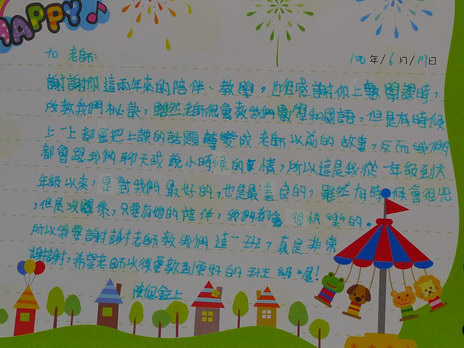 HAPPY
to 老師:
100年6月17日
謝謝你這兩年來的陪伴、教學,也很感謝你上數學課時,
所教我們秘訣,雖然老師很會教我們數學和國語,但是有時候
上一上都會把上課的話題轉變成老師以前的故事,反而
都會跟我們聊天或說小時候的事情,所以這是我從一年級到六
年級以來,是對我們最好的,也是最善良的,雖然有時候會很兇
,但是沒關係,只要有您的陪伴,我們都會很快樂的。
所以我要謝謝老師教我們這一班,真是非常
謝謝,希望老師以後要教到更好的班級喔!
上